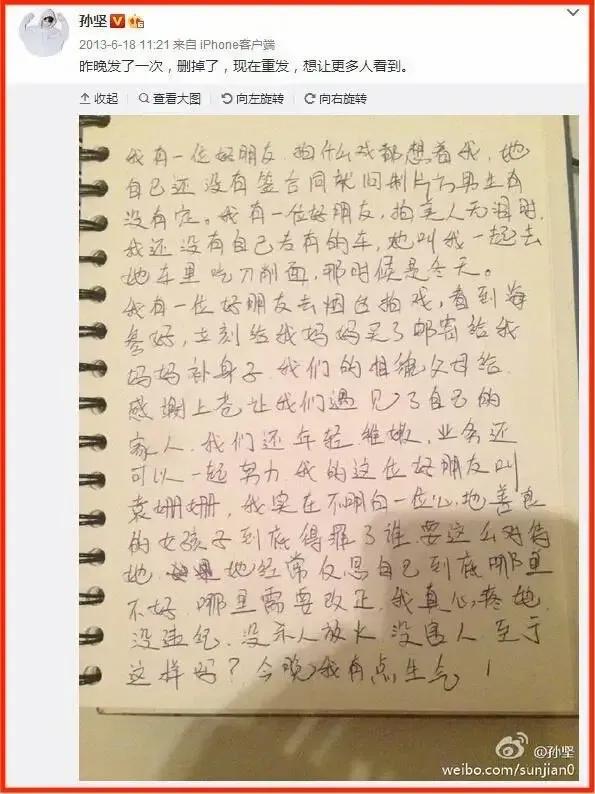 孙坚
2013-6-18 11:21 来自 iPhone客户端
昨晚发了一次，删掉了，现在重发，想让更多人看到。
收起 查看大图 向左旋转 向右旋转
我有一位好朋友，拍什么戏都想着我，她
自己还没有签合同就问制片方男生有
没有定。我有一位好朋友，拍美人无泪时，
我还没有自己占有的车，她叫我一起去
她车里吃刀削面，那时候是冬天。
我有一位好朋友去烟台拍戏，看到海
参好，立刻给我妈妈买了邮寄给我
妈妈补身子。我们的相貌父母给，
感谢上苍让我们遇见了自己的
家人，我们还年轻稚嫩，业务还
可以一起努力，我的这位好朋友叫
袁姗姗，我实在不明白一位心地善良
的女孩子到底得罪了谁，要这么对待
她，她经常反思自己到底哪里
不好，哪里需要改正，我真心疼她，
没违纪，没杀人放火，没害人，至于
这样吗？今晚，我有点生气！
@孙坚
weibo.com/sunjian0